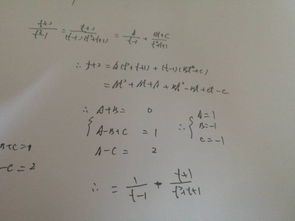 (t+2)/(t³-1) = (t+2)/((t-1)(t²+t+1)) = A/(t-1) + (Bt+C)/(t²+t+1)
∴ t+2 = A(t²+t+1) + (t-1)(Bt+C)
= At² + At + A + Bt² - Bt + Ct - C
∴ A+B = 0
A-B+C = 1 ∴ A=1
B=-1
A-C = 2 C=-1
B+C=1
-C=2
∴ = 1/(t-1) - (t+1)/(t²+t+1)